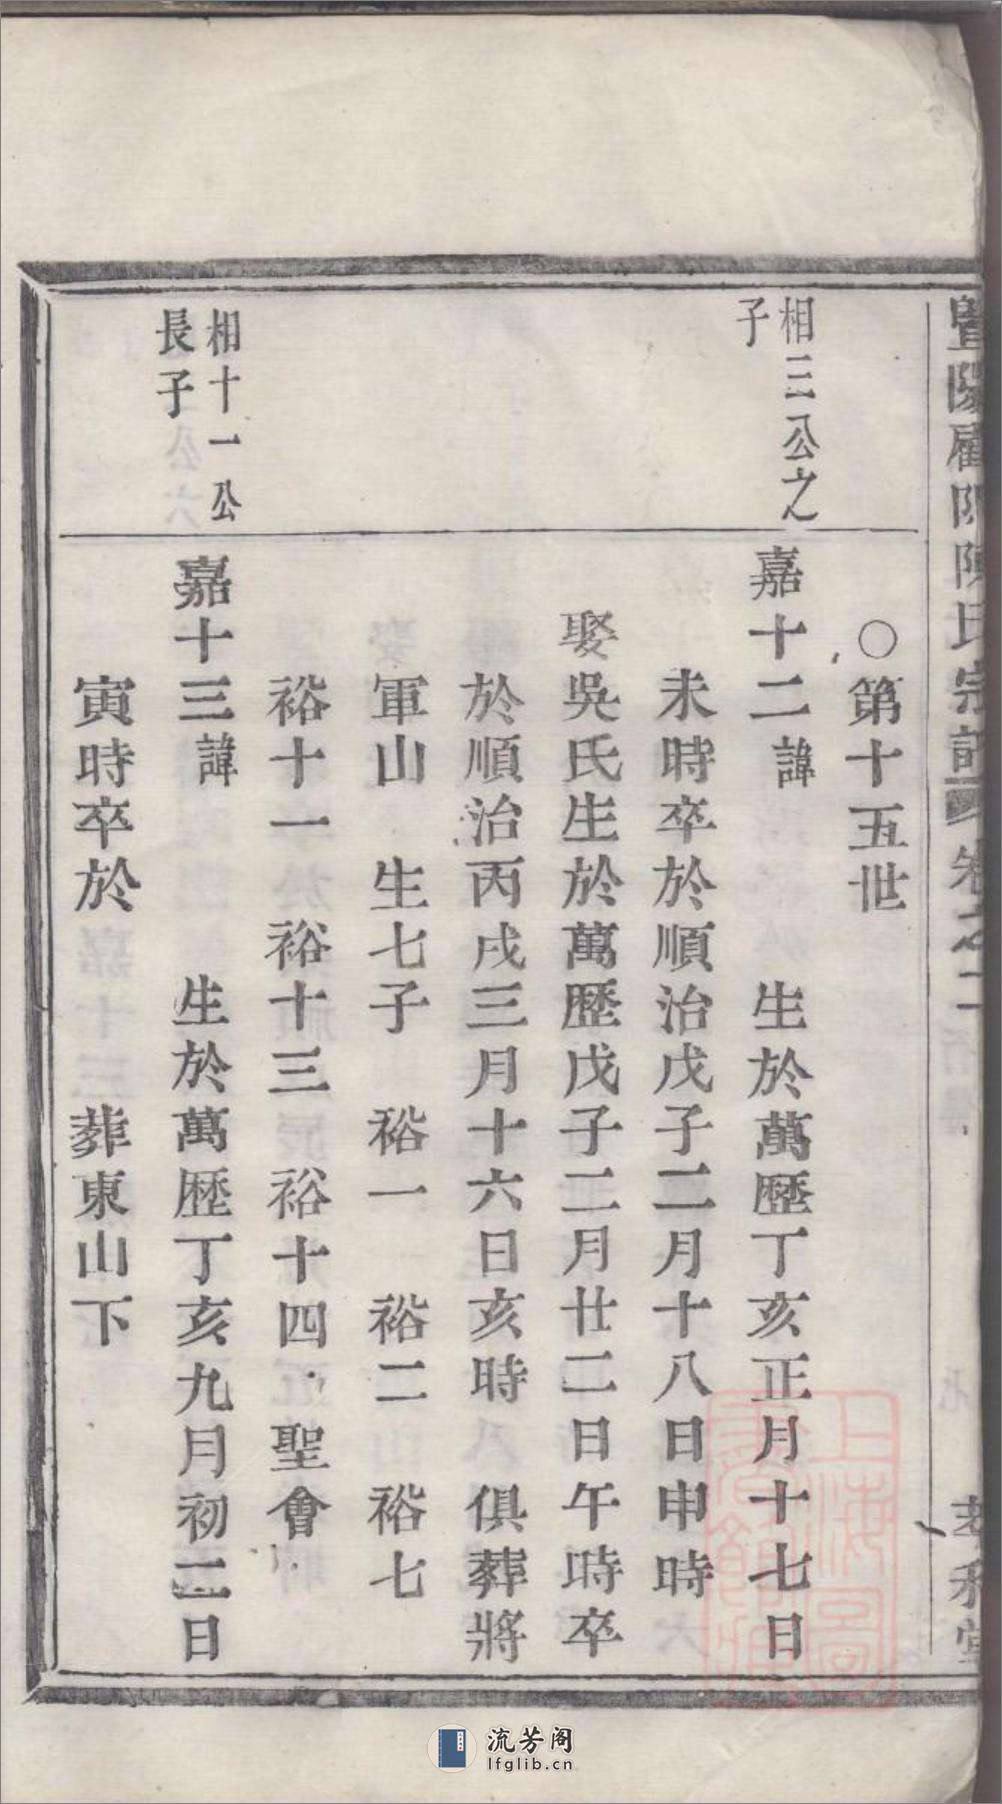 暨陽
陳氏宗譜
卷之
和堂
○第十五世
相三公之
子
嘉十二諱 生於萬歷丁亥正月十七日
未時卒於順治戊子二月十八日申時
娶吳氏生於萬歷戊子二月廿二日午時卒
於順治丙戌三月十六日亥時 俱葬將
軍山 生七子 裕一 裕二 裕七
裕十一 裕十三 裕十四 聖會
相十一公
長子
嘉十三諱 生於萬歷丁亥九月初二日
寅時卒於 葬東山下
上海圖書館藏
流芳阁
lfglib.cn